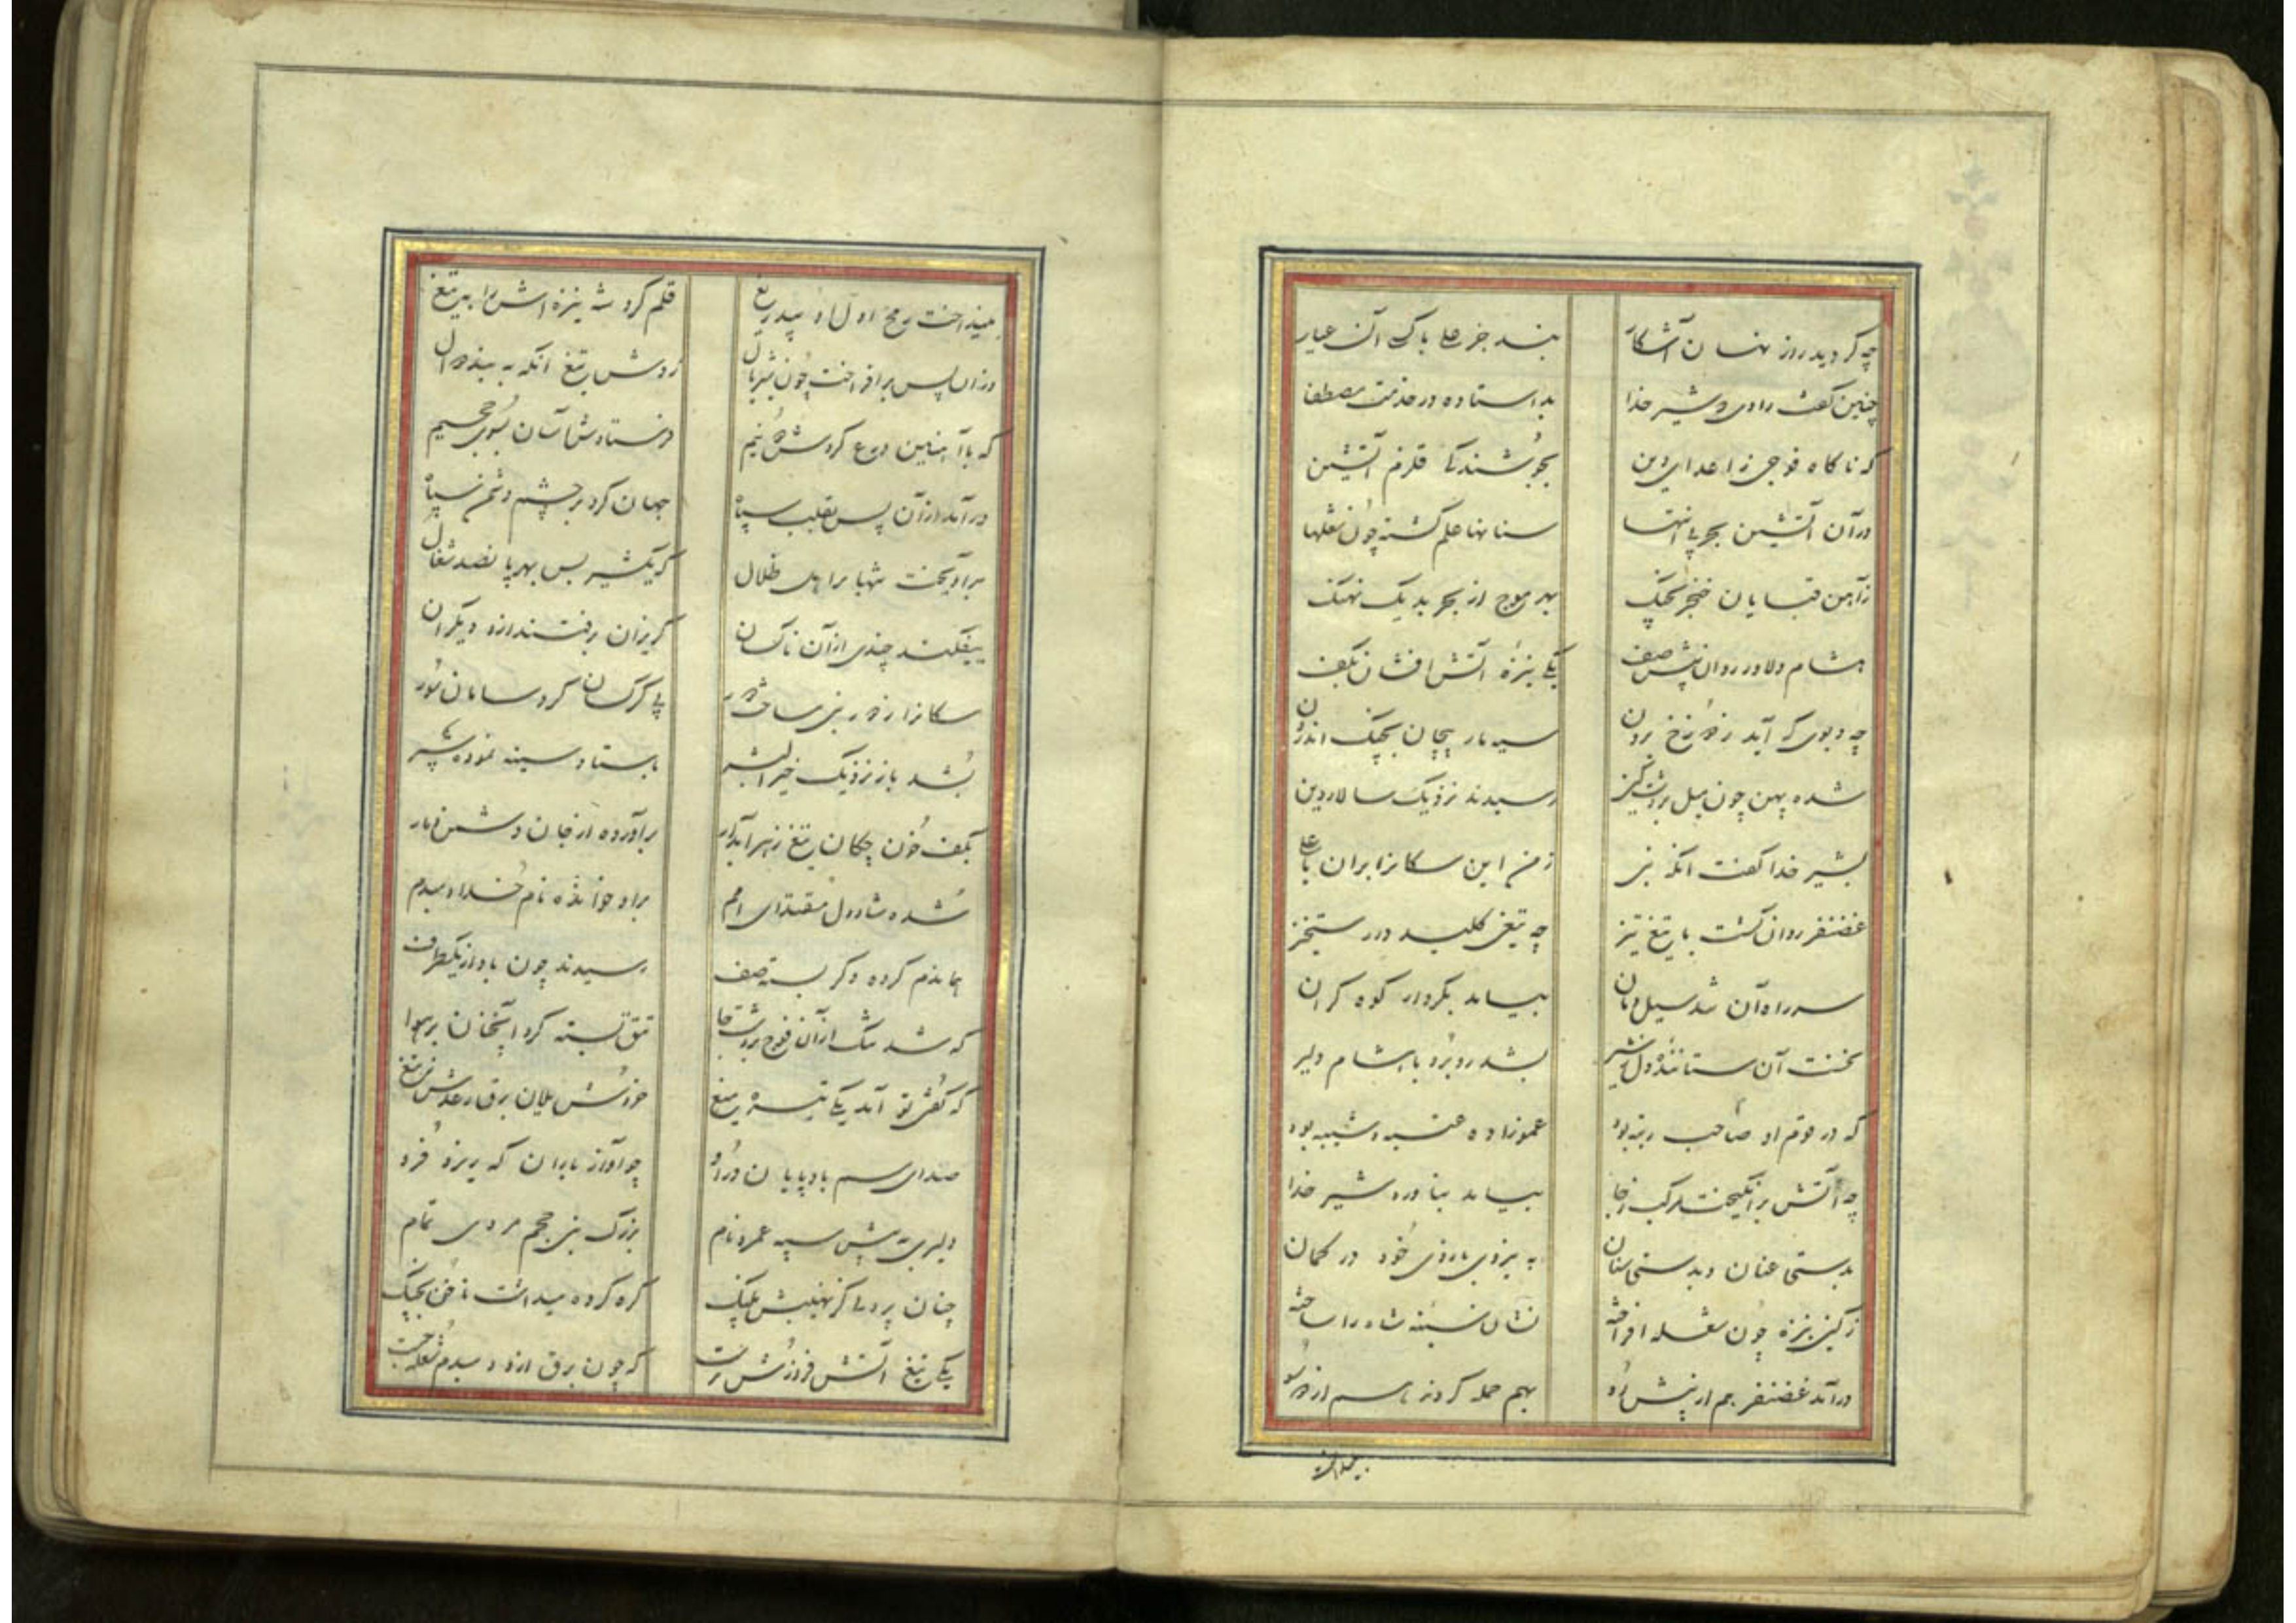 چه گردید روز نهان آشکار بند جز علی پاک آن عیار
چنین گفت راوی که شیر خدا بد استاده در خدمت مصطفا
که ناگاه فوجی ز اعدای دین بجوشند تا قلزم آتشین
در آن آتشین بحر بی انتها سنانها علم گشته چون شعلها
ز آهن قبایان خنجر بچنگ بهر موج از بحر بد یک نهنگ
هشام دلاور روان پیش صف یکی نیزهٔ آتش افشان بکف
چه دیوی که آید ز دوزخ برون سیه مار پیچان بچنگ اندرون
شده پهن چون سیل بر دشت کین رسیدند نزدیک سالار دین
بشیر خدا گفت آنگه نبی ز من این سکانرا بران یا علی
غضنفر روان گشت با تیغ تیز چه تیغی کلید در رستخیز
سر راه آن شد سیل دمان بیامد بکردار کوه گران
نخست آن ستاننده دل ز شیر بشد روبرو با هشام دلیر
که در قوم او صاحب رتبه بود عموزاده عتبه و شیبه بود
چه آتش برانگیخت مرکب ز جا بیامد بناورد شیر خدا
بدستی عنان و بدستی سنان به نیروی بازوی خود در گمان
ز کین نیزه چون شعله افراخته نشان سینهٔ شاه را ساخته
درآمد غضنفر هم از پیش رو بهم حمله کردند باسم از دو سو
بینداخت
بینداخت رمح اول او بیدریغ قلم کرد شه نیزه اش را به تیغ
وزان پس برافراخت چون شیر یال زدش تیغ آنگه به
که با آهنین درع کردش دو نیم فرستادش آسان بسوی جحیم
درآمد از آن پس بقلب سپاه جهان کرد بر چشم دشمن سیاه
برآویخت تنها برا اهل ظلال که یکشیر بس بهر پانصد شغال
بیفکند چندی از آن ناکسان گریزان برفتند ازو دیگران
سکانرا ز دور نبی ساخت دور پی کرکسان کرد سامان سور
بشد باز نزدیک خیر البشر باستاد سینه نموده سپر
بکف خون چکان تیغ زهر آبدار برآورده از جان دشمن دمار
شده شاد دل مقتدای امم براو خوانده نام خدا دمبدم
هماندم گروه دگر بسته صف رسیدند چون باد از یکطرف
که شد تنک از آن فوج بر دشت جا تتق بسته گرد آنچنان بر هوا
که گفتی تو آمد یکی تیره میغ خروش یلان برق رعدش ز تیغ
صدای سم بادپایان در او چو آواز باران که ریزد فرو
دلیری به پیش سپه عمرو نام بزرگ بنی جمح مردی تمام
چنان پر دل کز نهیبش پلنگ گره کرده میداشت ناخن بچنگ
یکی تیغ آتش فروزش بدست که چون برق ازو دمبدم شعله جست